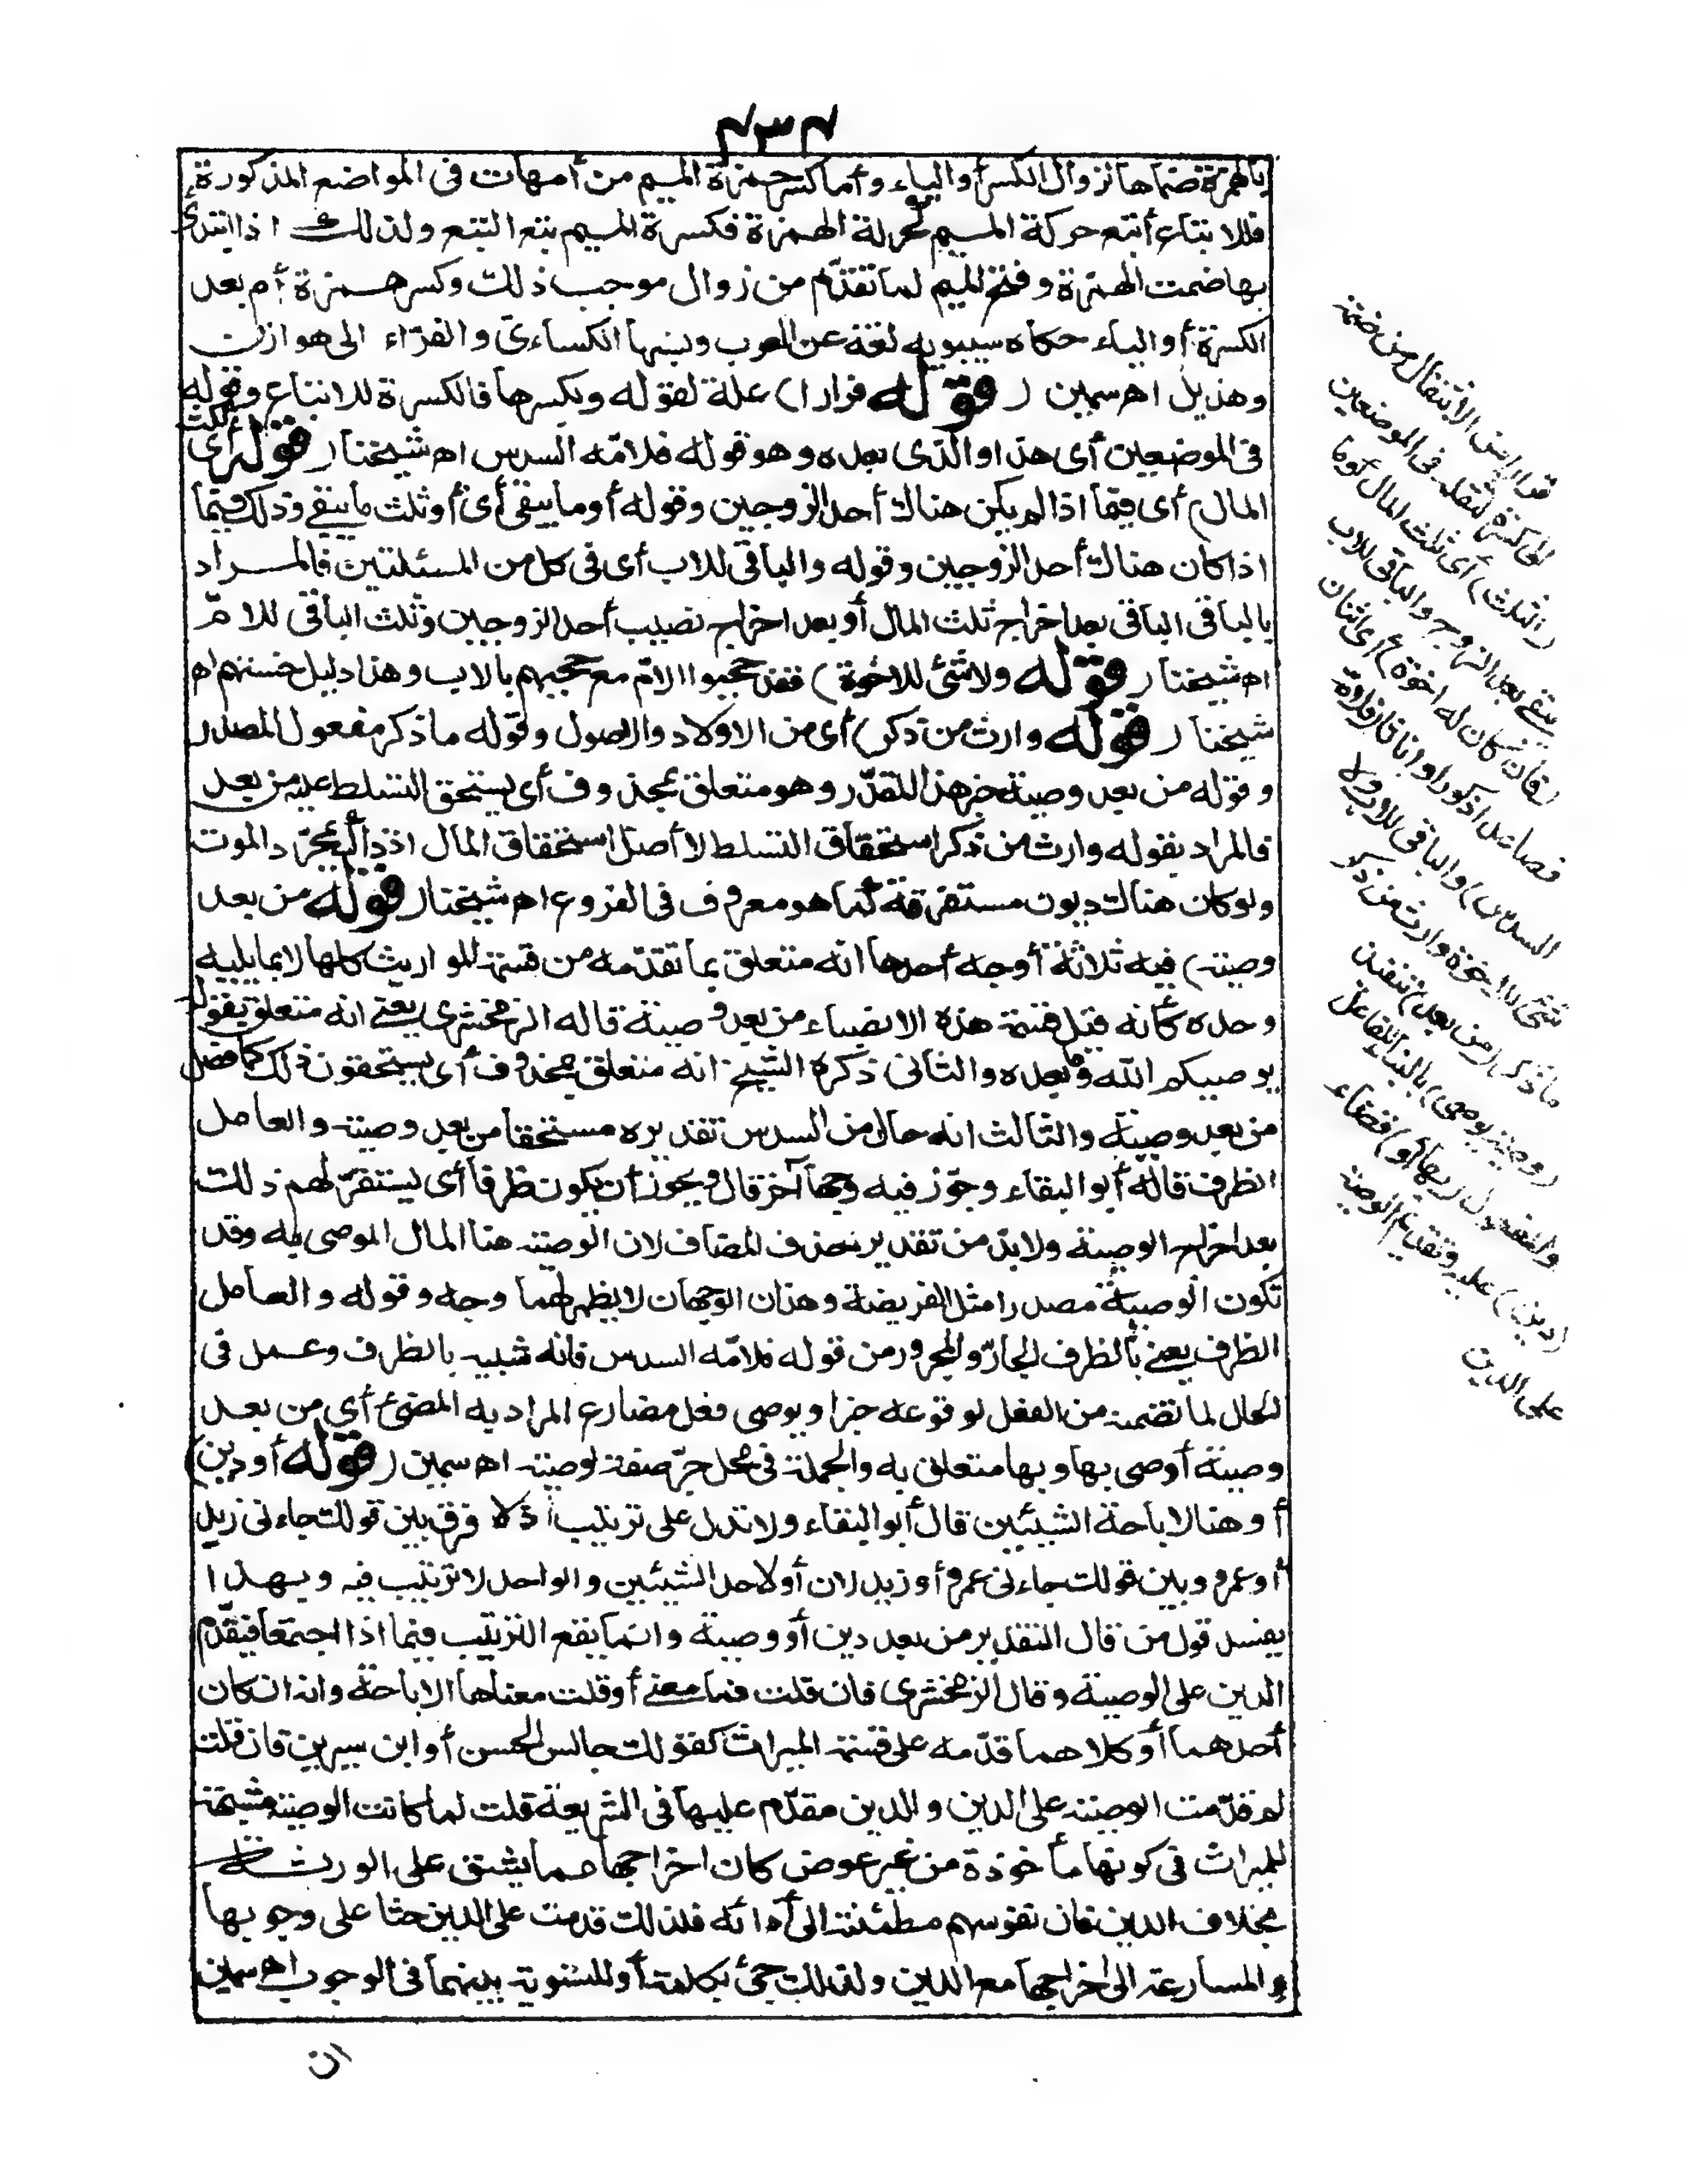 ٤٣٤
بالهمزة ضماها لزوال الكسر أو الياء وأما كسر حمزة الميم من أمهات في المواضع المذكورة
فللاتباع أتبع حركة الميم لحركة الهمزة فكسرة الميم تبع التبع ولذلك اذا ابتدئ
بها ضمت الهمزة وفتح الميم لما تقدّم من زوال موجب ذلك وكسر همزة أم بعد
الكسرة أو الياء حكاه سيبويه لغة عن العرب ونسبها الكساءي والفرّاء الى هوازن
وهذيل اه سمين ( قوله فرارا) علة لقوله وبكسرها فالكسرة للاتباع وقوله
في الموضعين أى هذا والذى بعده وهو قوله فلامّه السدس اه شيخنا ( قوله أى ثلث
المال) أى فيما اذا لم يكن هناك أحد الزوجين وقوله أو ما يبقى أى أو ثلث ما يبقى وذلك فيما
اذا كان هناك أحد الزوجين وقوله والباقى للاب أى فى كل من المسئلتين فالمراد
بالباقى الباقى بعد اخراج ثلث المال أو بعد اخراج نصيب أحد الزوجين وثلث الباقى للامّ
اه شيخنا ( قوله ولا شئ للاخوة) فقد حجبوا الامّ مع حجبهم بالاب وهذا دليل خستهم اه
شيخنا ( قوله وارث من ذكر) أى من الاولاد والاصول وقوله ما ذكر مفعول المصدر
وقوله من بعد وصية خبر هذا المقدّر وهو متعلق بمحذوف أى يستحق التسلط عليه من بعد
فالمراد بقوله وارث من ذكر استحقاق التسلط لا أصل استحقاق المال اذ ذاك بمجرّد الموت
ولو كان هناك ديون مستغرقة كما هو معروف فى الفروع اه شيخنا ( قوله من بعد
وصية) فيه ثلاثة أوجه أحدها انه متعلق بما تقدّمه من قسمة المواريث كلها لا بما يليه
وحده كأنه قيل قسمة هذه الانصباء من بعد وصية قاله الزمخشرى يعنى انه متعلق بقوله
يوصيكم الله وما بعده والثانى ذكره الشيخ انه متعلق بمحذوف أى يستحقون ذلك كما فصل
من بعد وصية والثالث انه حال من السدس تقديره مستحقا من بعد وصية والعامل
الظرف قاله أبو البقاء وجوّز فيه وجها آخر قال ويجوز أن يكون ظرفا أى يستقرّ لهم ذلك
بعد اخراج الوصية ولا بدّ من تقدير حذف المضاف لان الوصية هنا المال الموصى به وقد
تكون الوصية مصدرا مثل الفريضة وهذان الوجهان لا يظهر لهما وجه وقوله والعامل
الظرف يعنى بالظرف الجارّ والمجرور من قوله فلامّه السدس فانه شبيه بالظرف وعمل فى
الحال لما تضمنه من الفعل لوقوعه خبرا ويوصى فعل مضارع المراد به المضىّ أى من بعد
وصية أوصى بها وبها متعلق به والجملة فى محل جرّ صفة لوصية اه سمين ( قوله أو دين)
أو هنا لاباحة الشيئين قال أبو البقاء ولا تدل على ترتيب اذ لا فرق بين قولك جاءنى زيد
أو عمرو وبين قولك جاءنى عمرو أو زيد لان أو لاحد الشيئين والواحد لا ترتيب فيه وبهذا
يفسد قول من قال التقدير من بعد دين أو وصية وانما يقع الترتيب فيما اذا اجتمعا فيقدّم
الدين على الوصية وقال الزمخشرى فان قلت فما معنى أو قلت معناها الاباحة وانه ان كان
أحدهما أو كلاهما قدّمه على قسمة الميراث كقولك جالس الحسن أو ابن سيرين فان قلت
لم قدّمت الوصية على الدين والدين مقدّم عليها فى الشريعة قلت لما كانت الوصية مشبهة
للميراث فى كونها مأخوذة من غير عوض كان اخراجها مما يشق على الورثة
بخلاف الدين فان نفوسهم مطمئنة الى أدائه فلذلك قدمت على الدين حثا على وجوبها
والمسارعة الى اخراجها مع الدين ولذلك جئ بكلمة أو للتسوية بينهما فى الوجوب اه سمين
ان
فرارا من الانتقال من ضمة
الى كسرة لثقله فى الموضعين
(الثلث) أى ثلث المال أو ما
يبقى بعد الزوج والباقى للاب
(فان كان له اخوة) أى اثنان
فصاعدا ذكورا أو اناثا (فلامّه
السدس) والباقى للاب ولا
شئ للاخوة وارث من ذكر
ما ذكر (من بعد) تنفيذ
(وصية يوصى) بالبناء للفاعل
والمفعول (بها أو) قضاء
(دين) عليه وتقديم الوصية
على الدين